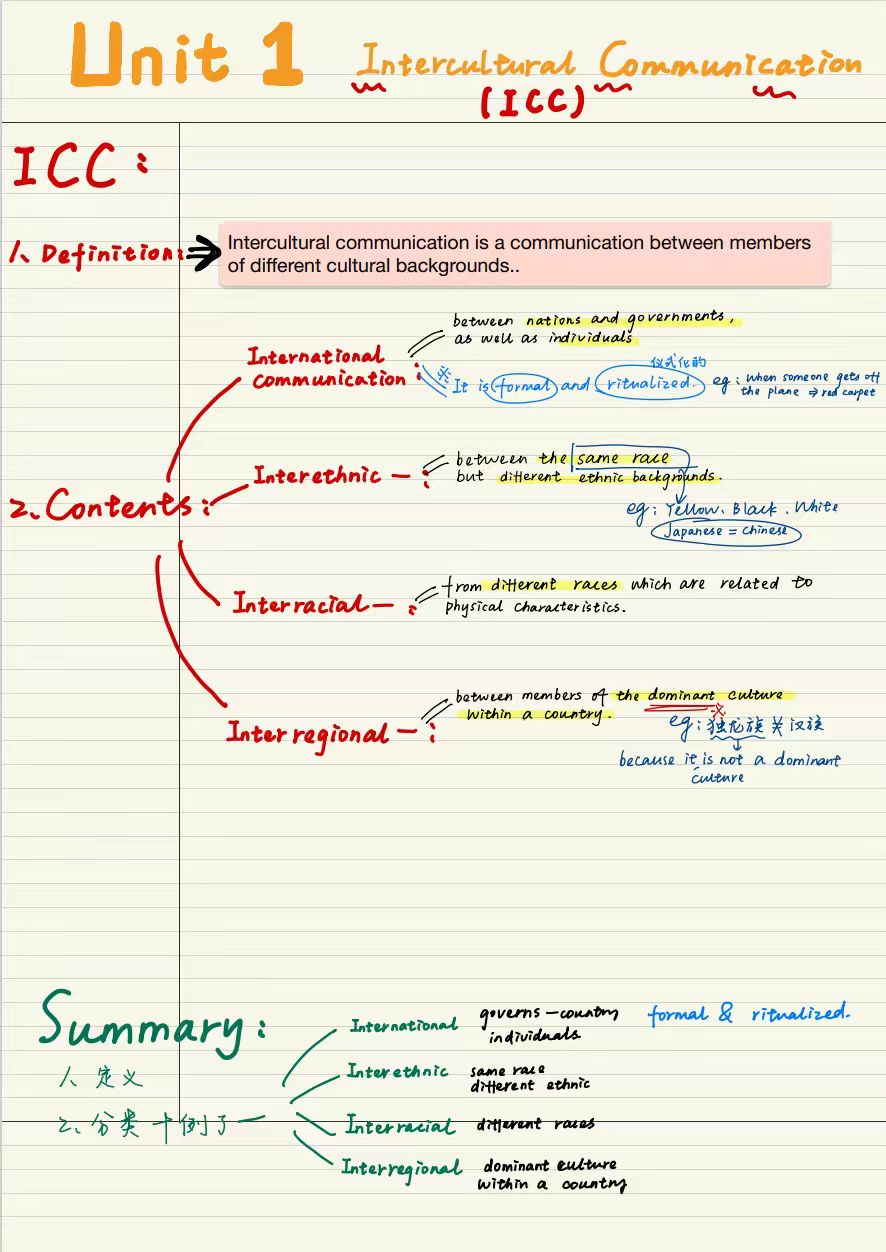 Unit 1 Intercultural Communication
(ICC)
ICC:
1、Definition:
Intercultural communication is a communication between members
of different cultural backgrounds..
2、Contents:
International
communication:
between nations and governments,
as well as individuals
仪式化的
It is formal and ritualized.
eg: When someone gets off
the plane ⇒ red carpet
Interethnic — :
between the same race
but different ethnic backgrounds.
eg: Yellow. Black. White
Japanese = Chinese
Interracial — :
from different races which are related to
physical characteristics.
Interregional — :
between members of the dominant culture
within a country.
eg: 独龙族 关 汉族
because it is not a dominant
culture
Summary:
1、定义
2、分类十例子一
International
governs—country
individuals
formal & ritualized.
Interethnic
same race
different ethnic
Interracial
different races
Interregional
dominant culture
within a country